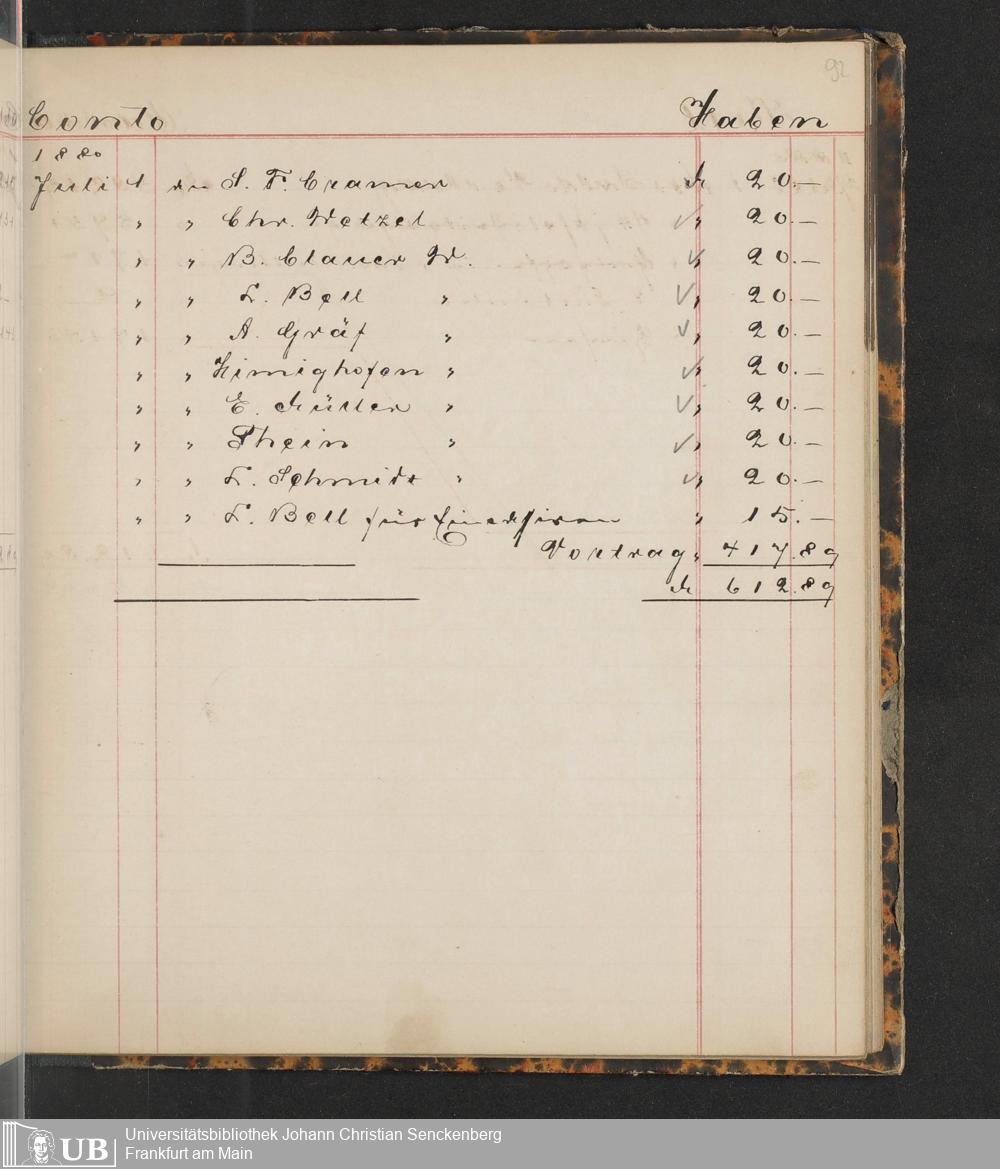 92
Conto Haben
1880
Juli 1 an S. F. Cramer M 20.—
" " Chr. Wetzel " 20.—
" " B. Clauer W. " 20.—
" " L. Bell " " 20.—
" " A. Gräf " " 20.—
" " Himighofen " " 20.—
" " E. Müller " " 20.—
" " Rhein " " 20.—
" " L. Schmidt " " 20.—
" " L. Bell für " 15.—
Vortrag " 417.89
M 612.89
UB Universitätsbibliothek Johann Christian Senckenberg
Frankfurt am Main